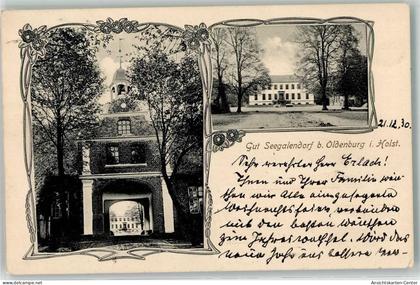 21.12.30.
Gut Seegalendorf b. Oldenburg i. Holst.
Sehr verehrter Herr Erlach!
Ihnen und Ihrer Familie wün-
schen wir Alle ein gesegnetes
Weihnachtsfest, verbunden
mit den besten Wünschen
zum Jahreswechsel. Wird das
neue Jahr uns
Ansichtskarten-Center